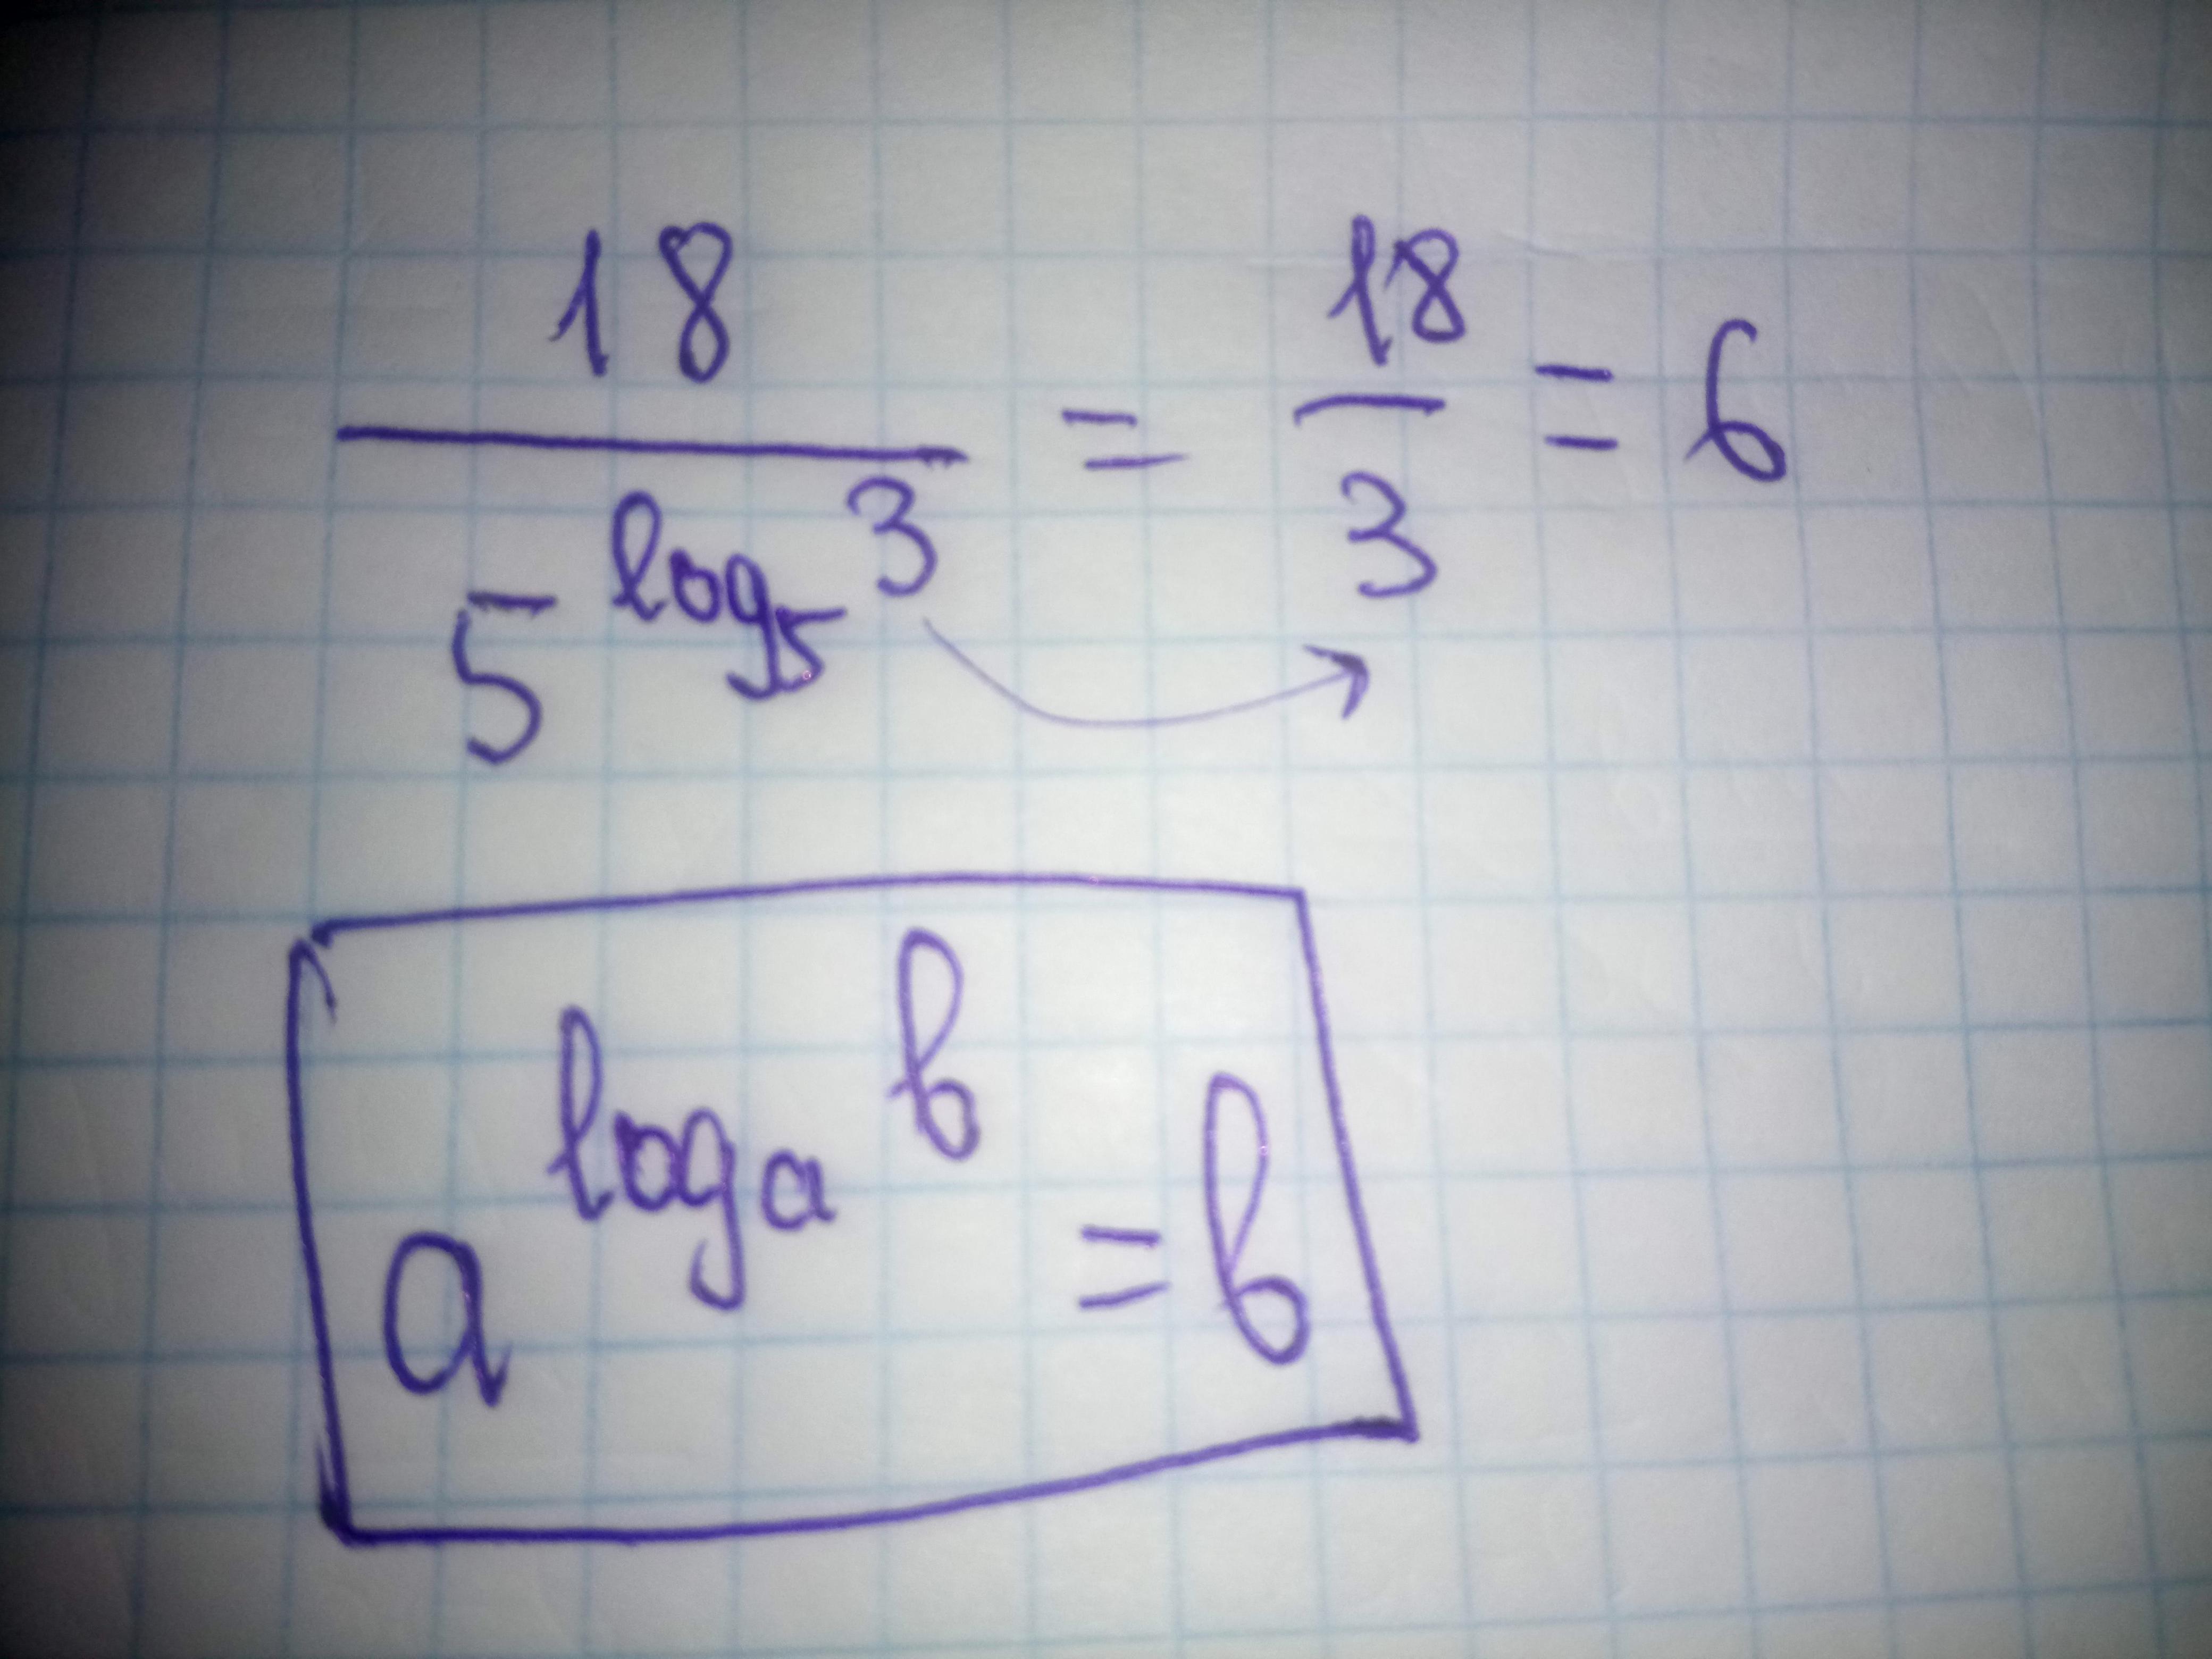 18 / 5^{log_5 3} = 18/3 = 6
a^{log_a b} = b